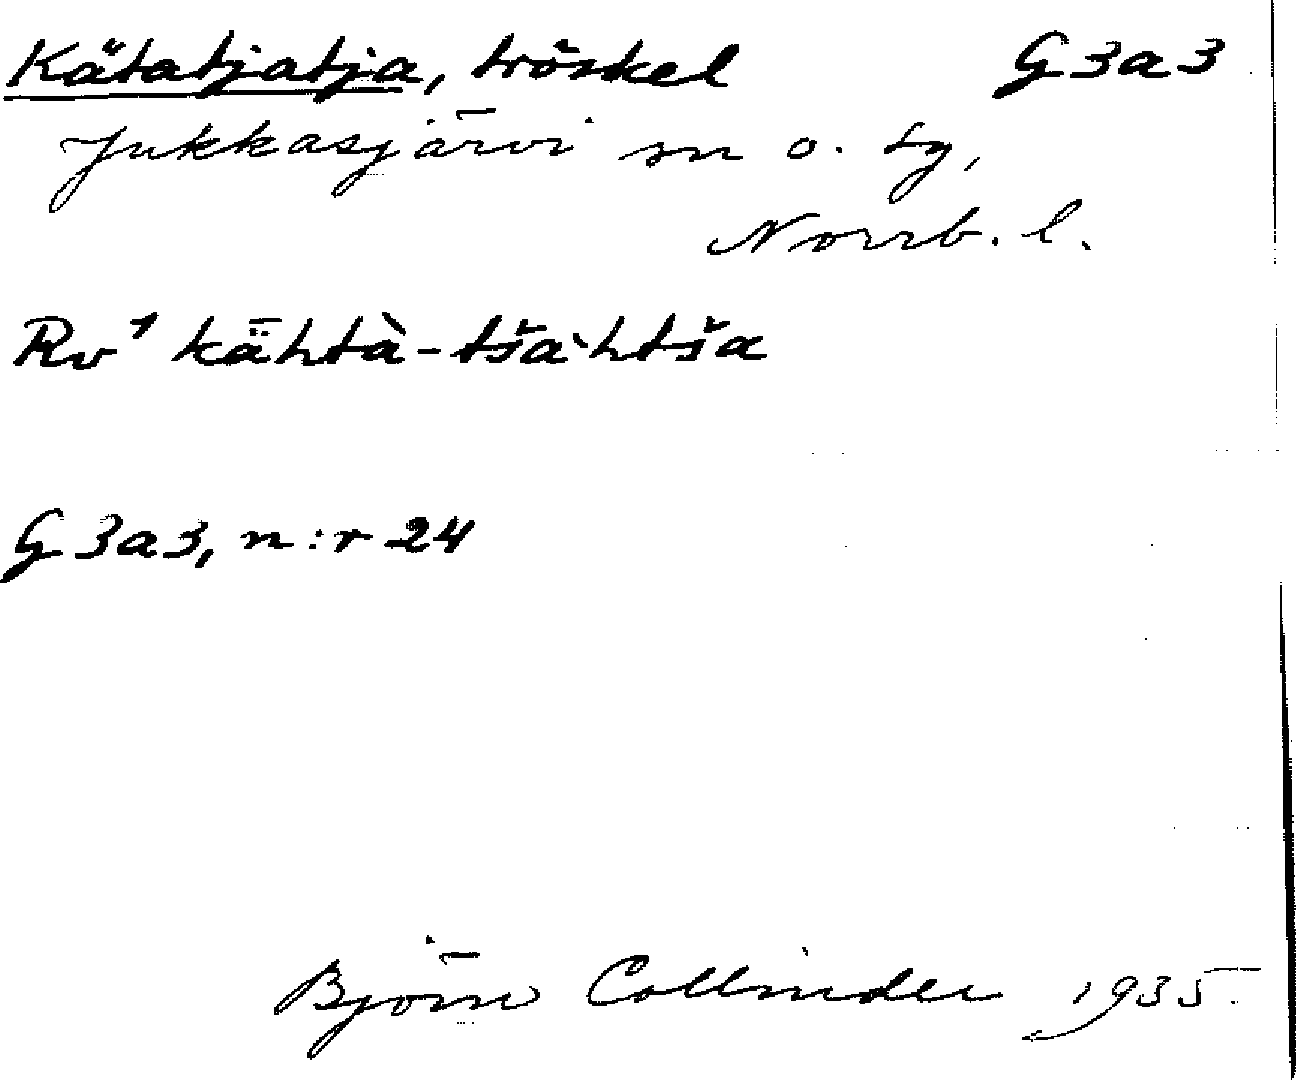 Kätatjatja, tröskel G3a3
Jukkasjärvi sn o. tg,
Norrb. l.
Rv¹ kǟhtà-tša`htša
G3a3, n:r 24
Björn Collinder 1935.